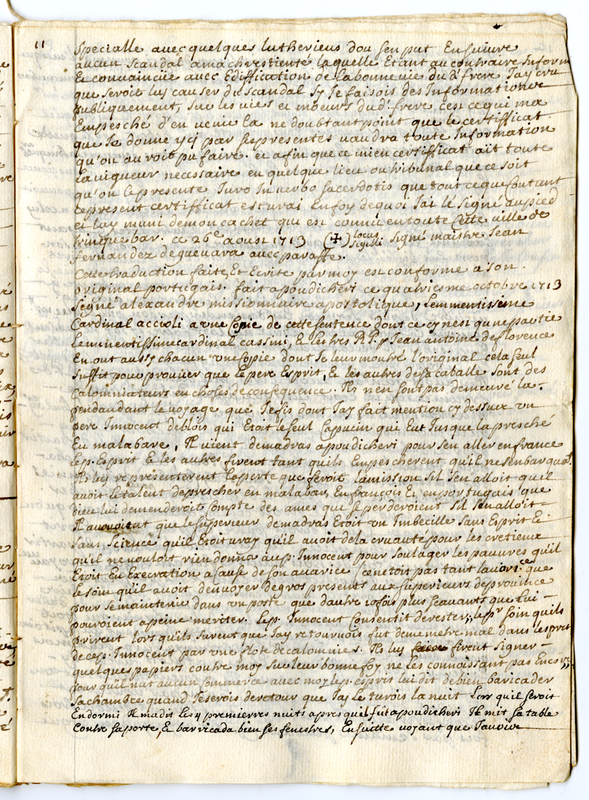 11
specialle avec quelques lutheriens dou sen put Ensuivre
aucun scandal ama chrestienté laquelle Etant au contraire Inform
Et convaincüe avec Ediffication de labonne vie du d.t frere Jay cru
que seroit luy causer du scandal sy Je faisois des Informations
publiquement, sur les vies et moeurs du d.t frere cest ce qui ma
Empesché d'en venir la ne doubtant point que le certifficat
que Je donne icy par ses presentes vaudra toute Information
qu'on auroit pu faire. et afin que ce mien certifficat ait toute
la vigueur necessaire en quelque lieu ou tribunal que ce soit
qu'on le presente Juro In verbo sacerdotis que tout ce que contient
le present certifficat est vrai En foy de quoi Jai le Signé au pied
et lay muni de mon cachet qui est connu en toute cette ville de
trinquebar. ce 26e aoust 1713 (✝) Locus Sigilli Signé maistre Jean
fernandez de guevara avec paraffe.
Cette traduction faite Et Ecrite par moy est conforme a son
original portugais. fait a poudicheri ce quatriesme octobre 1713
Signé alexandre missionnaire apostolique, Lemmentissime
Cardinal accioli a une copie de cette sentence dont ce cy nest qu'une partie
Leminentissime cardinal cassini, & les tres R.P. Jean antoine de florence
En ont aussy chacun une copie dont Je leur montré l'original cela seul
suffit pour prouver que le pere Esprit, & les autres de sa caballe sont des
Calomniateurs en choses de consequence. Ils n'en sont pas demeuré la.
pendandant le voyage que Je fis dont Jay fait mention cy dessus un
pere Innocent deblois qui Etoit le seul Capucin qui Eut Jusque la presché
En malabare, Il vient de madras a poudicheri pour s'en aller en france
Le p. Esprit & les autres firent tant quils Empescherent qu'il ne s'enbarquat.
Ils luy representerent la perte que feroit la mission sil s'en alloit quil
avoit le talent de prescher en malabar, En francois Et en portugais que
dieu lui demenderoit compte des ames qui se perderoient sil s'en alloit
Il avouoient que le superieur de madras Etoit un Imbecille sans Esprit &
sans science qu'il etoit vray quil avoit de la cruauté pour les cretiens
quil ne vouloit rien donner au p. Innocent pour soulager les pauvres quil
Etoit En execration a cause de son avarice ce netoit pas tant lavarice que
le soin quil avoit denvoyer de gros presents aux superieurs de province
pour se maintenir dans un poste que dautre cofois plus scavants que lui
pouvoient a peine meriter. Le p. Innocent consentit de rester, le p.r soin quils
prirent lors quils surent que Jay retournois fut de me metre mal dans lesprit
de ce p. Innocent par une flote de calomnies. Ils luy firent signer
quelques papiers contre moy sur leur bonne foy ne les connoissant pas Encor
pour quil n'ut aucun commerce avec moy le p. esprit lui dit de bien baricader
sa chambre quand Je serois de retour que Jay le tuerois la nuit Lors quil seroit
Endormi Il me dit Les 4 premierres nuits apres quil fut a poudicheri Il mit sa table
Contre sa porte, & barricada bien ses fenestres, Ensuitte voyant que Javoive